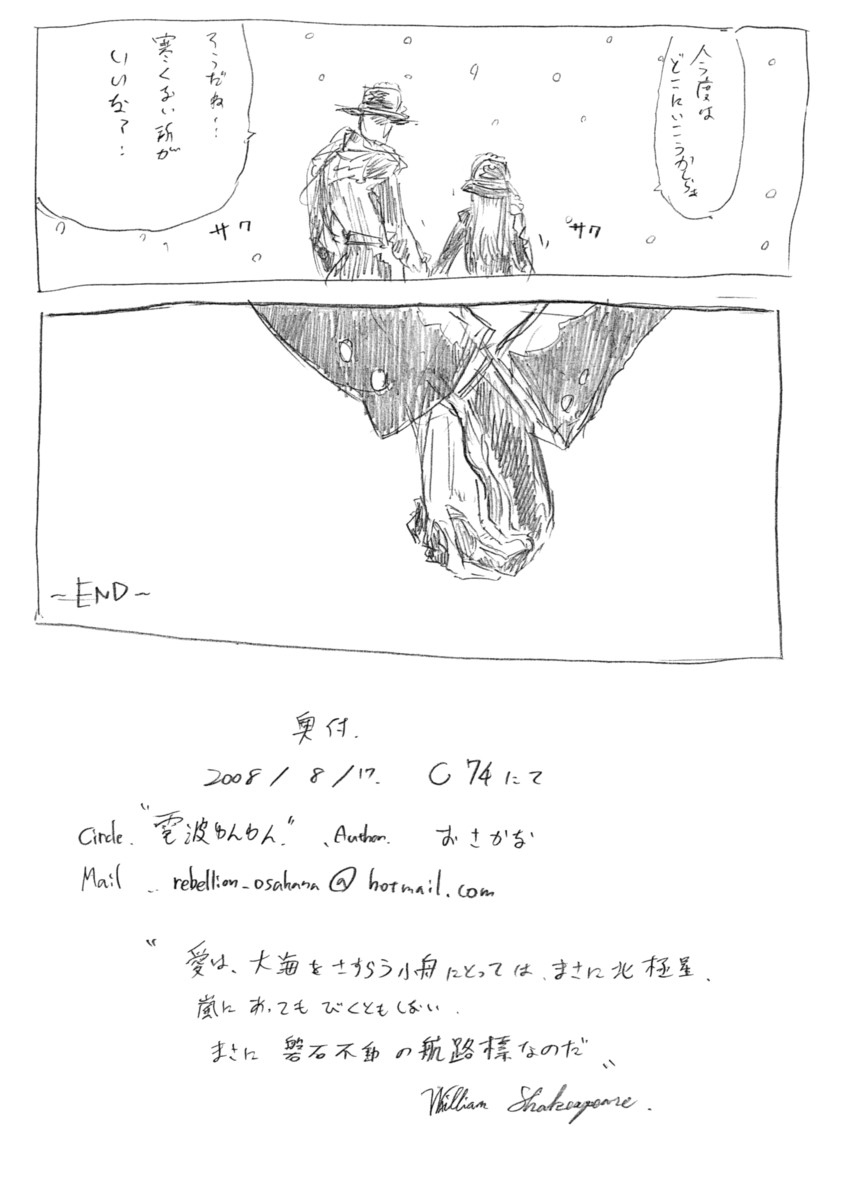 今度は
どこにいこうかしらぁ
そうだね…
寒くない所が
いいなァ…
サク
サク
～END～
奥付.
2008 / 8 / 17. C 74 にて
Circle. "電波わんわん." 、Author. おさかな
Mail … rebellion_osakana@hotmail.com
" 愛は、大海をさすらう小舟にとっては、まさに北極星、
嵐にあってもびくともしない.
まさに 磐石不動の航路標なのだ "
William Shakespeare.